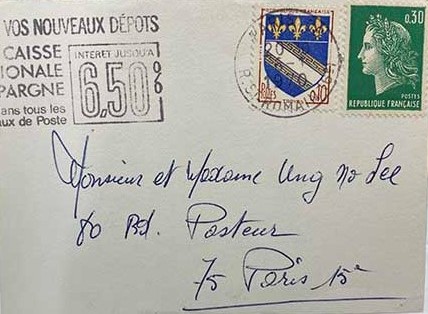 VOS NOUVEAUX DÉPOTS
CAISSE
IONALE
PARGNE
ans tous les
aux de Poste
INTERET JUSQU'A
6,50%
FRANÇAISE
0,10
0.30
POSTES
REPUBLIQUE FRANÇAISE
Monsieur et Madame Ung No Lee
80 Bd. Pasteur
75 Paris 15e